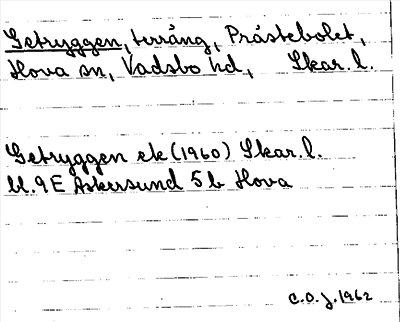 Getryggen, terräng, Prästebolet,
Hova sn, Vadsbo hd, Skar. l.
Getryggen ek (1960) Skar. l.
bl. 9E Askersund 5b Hova
C.O.J. 1962